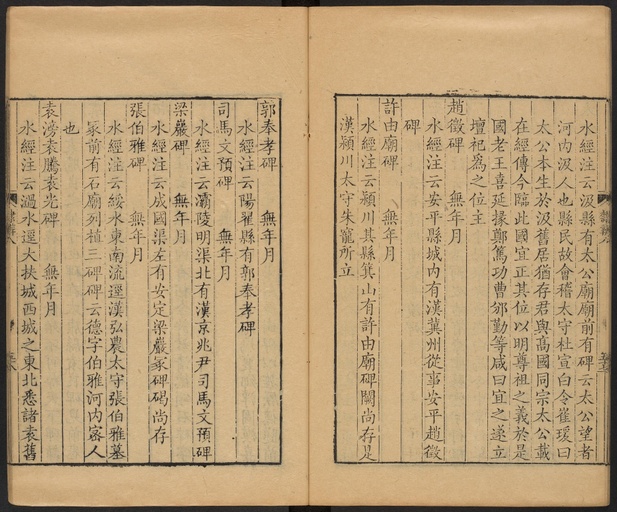 水經注云汲縣有太公廟廟前有碑云太公望者
河內汲人也縣民故會稽太守杜宣白令崔瑗曰
太公本生於汲舊居猶存君與高國同宗太公載
在經傳今臨此國宜正其位以明尊祖之義於是
國老王喜延掾鄭篤功曹邠勤等咸曰宜之遂立
壇祀為之位主
趙徵碑 無年月
水經注云安平縣城內有漢冀州從事安平趙徵
碑
許由廟碑 無年月
水經注云潁川其縣箕山有許由廟碑闕尚存是
漢潁川太守朱寵所立
郭奉孝碑 無年月
水經注云陽翟縣有郭奉孝碑
司馬文預碑 無年月
水經注云灞陵明渠北有漢京兆尹司馬文預碑
梁嚴碑 無年月
水經注云成國渠左有安定梁嚴冢碑碣尚存
張伯雅碑 無年月
水經注云綏水東南流逕漢弘農太守張伯雅墓
冢前有石廟列植三碑碑云德字伯雅河內密人
也
袁滂袁騰袁光碑 無年月
水經注云渦水逕大扶城西城之東北悉諸袁舊